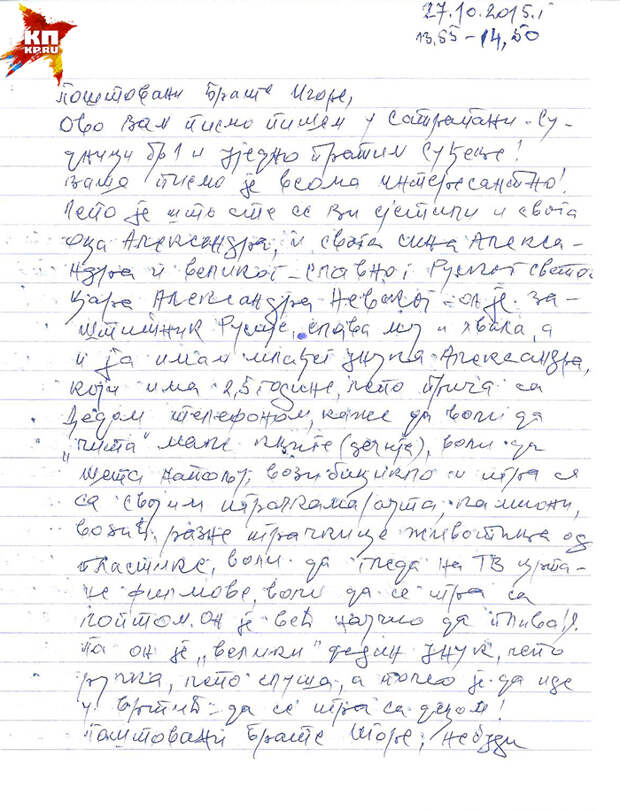 КП
KP.RU
27.10.2015.г
13,55-14,50
Поштовани Брате Игоре,
Ово Вам писмо пишем у сатрмани-су-
дници бр 1 и уједно пратим суђење!
Ваше писмо је веома интересантно!
Лепо је што сте се Ви сјетили и свога
оца Александра, и свога сина Алекса-
ндра и великог-славног Руског светог
цара Александра Невског-он је за-
штитник Русије, слава му и хвала, а
и ја имам млађег унука-Александра,
који има 2,5 године, лепо прича са
Дедом телефоном, каже да воли да
"чита" мале књиге (дечије), воли да
шета напољу, вози бицикло и игра се
са својим играчкама/аута, камиони,
возић, разне играчкице животиња од
пластике, воли да гледа на ТВ црта-
не филмове, воли да се игра са
лоптом. Он је већ научио да плива!
Па он је "велики" дедин унук, лепо
ручка, лепо слуша, а почео је да иде
у вртић-да се игра са децом!
Поштовани Брате Игоре, небуди